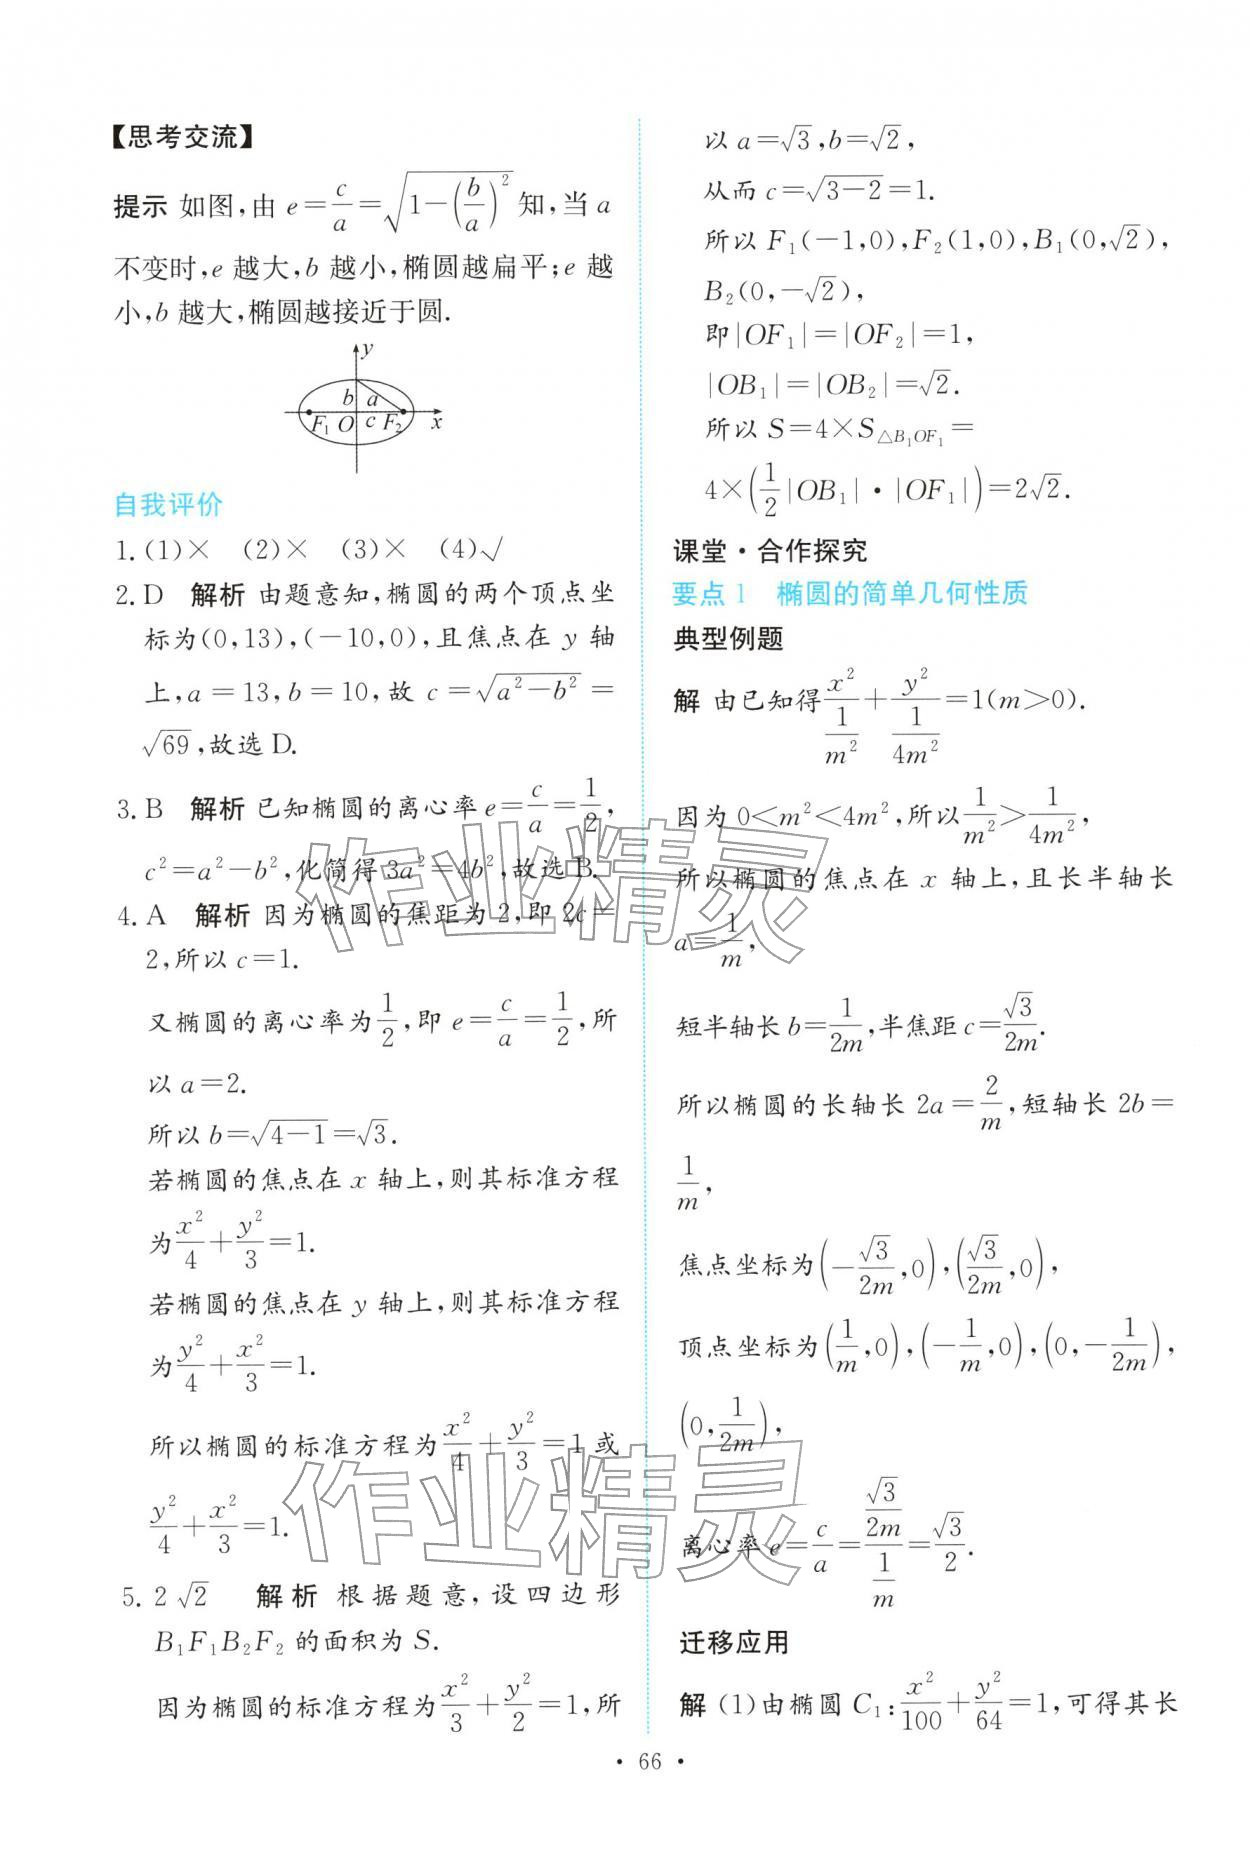 【思考交流】
提示 如图,由 e=c/a=√(1-(b/a)²) 知,当 a
不变时,e 越大,b 越小,椭圆越扁平;e 越
小,b 越大,椭圆越接近于圆.
y
b a
F₁ O c F₂ x
自我评价
1. (1)× (2)× (3)× (4)√
2. D 解析 由题意知,椭圆的两个顶点坐
标为(0,13),(-10,0),且焦点在 y 轴
上,a=13,b=10,故 c=√(a²-b²)=
√69,故选 D.
3. B 解析 已知椭圆的离心率 e=c/a=1/2,
c²=a²-b²,化简得 3a²=4b²,故选 B.
4. A 解析 因为椭圆的焦距为 2,即 2c=
2,所以 c=1.
又椭圆的离心率为1/2,即 e=c/a=1/2,所
以 a=2.
所以 b=√(4-1)=√3.
若椭圆的焦点在 x 轴上,则其标准方程
为x²/4+y²/3=1.
若椭圆的焦点在 y 轴上,则其标准方程
为y²/4+x²/3=1.
所以椭圆的标准方程为x²/4+y²/3=1 或
y²/4+x²/3=1.
5. 2√2 解析 根据题意,设四边形
B₁F₁B₂F₂ 的面积为 S.
因为椭圆的标准方程为x²/3+y²/2=1,所
以 a=√3,b=√2,
从而 c=√(3-2)=1.
所以 F₁(-1,0),F₂(1,0),B₁(0,√2),
B₂(0,-√2),
即|OF₁|=|OF₂|=1,
|OB₁|=|OB₂|=√2.
所以 S=4×S△B₁OF₁=
4×(1/2|OB₁|·|OF₁|)=2√2.
课堂·合作探究
要点 1 椭圆的简单几何性质
典型例题
解 由已知得x²/(1/m²)+y²/(1/4m²)=1(m>0).
因为 0<m²<4m²,所以1/m²>1/4m²,
所以椭圆的焦点在 x 轴上,且长半轴长
a=1/m,
短半轴长 b=1/2m,半焦距 c=√3/2m.
所以椭圆的长轴长 2a=2/m,短轴长 2b=
1/m,
焦点坐标为(-√3/2m,0),(√3/2m,0),
顶点坐标为(1/m,0),(-1/m,0),(0,-1/2m),
(0,1/2m),
离心率 e=c/a=(√3/2m)/(1/m)=√3/2.
迁移应用
解 (1)由椭圆 C₁:x²/100+y²/64=1,可得其长
· 66 ·
作业精灵
作业精灵